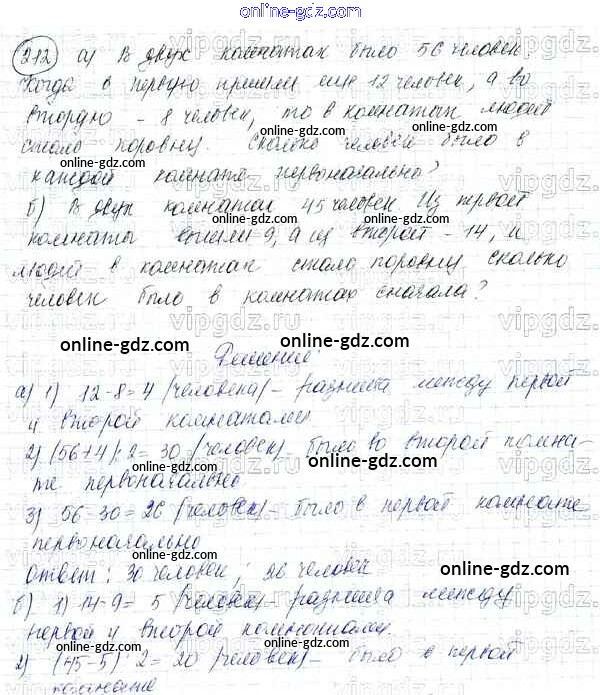 online-gdz.com
212 а) В двух комнатах было 56 человек
Когда в первую пришли еще 12 человек, а во
вторую - 8 человек, то в комнатах людей
стало поровну. Сколько человек было в
каждой комнате первоначально?
б) В двух комнатах 45 человек Из первой
комнаты вышли 9, а из второй - 14, и
людей в комнатах стало поровну сколько
человек было в комнатах сначала?
online-gdz.com online-gdz.com
Решение:
а) 1) 12-8=4 (человека) - разница между первой
и второй комнатами
2) (56+4):2=30 (человек) - было во второй комна-
те первоначально
3) 56-30=26 (человек) - было в первой комнате
первоначально
Ответ: 30 человек; 26 человек
б) 1) 14-9=5 (человек) - разница между
первой и второй комнатами.
2) (45-5):2=20 (человек) - было в первой
комнате
online-gdz.com
vipgdz.ru